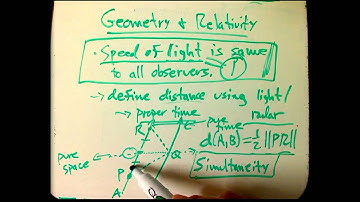 Geometry & Relativity
• Speed of light is same
to all observers. 1
→ define distance using light/
radar
→ proper time
pure
time
R
E
d(A,B)=½||PR||
pure
space
Q
Simultaneity
P
A